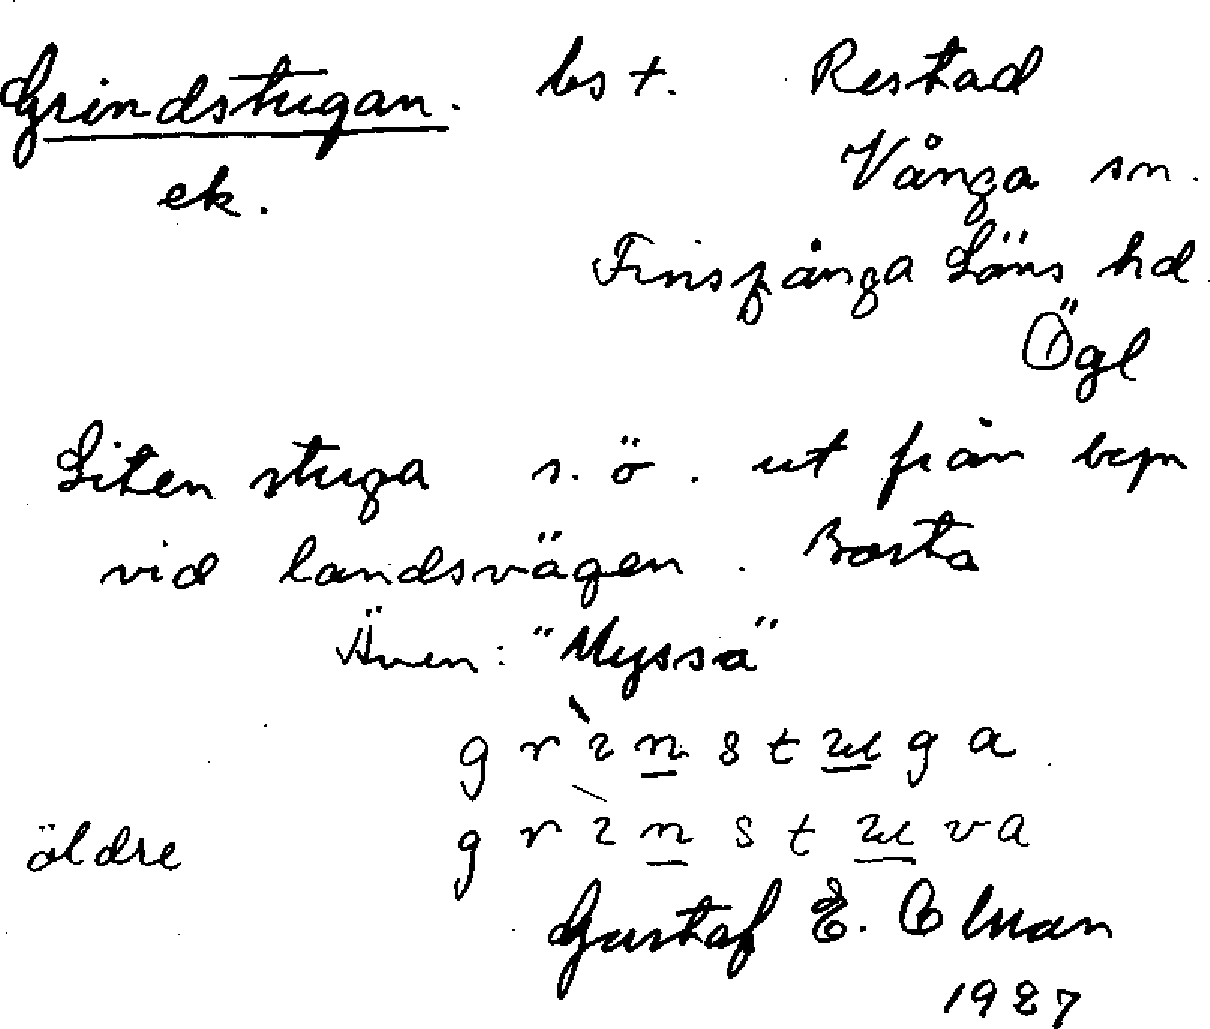 Grindstugan. bst. Restad
ek. Vånga sn.
Finspånga Läns hd.
Ögl
Liten stuga s.ö. ut från byn
vid landsvägen. Borta
Även: "Myssa"
grìnstuga
äldre grìnstuva
Gustaf E. Olman
1927